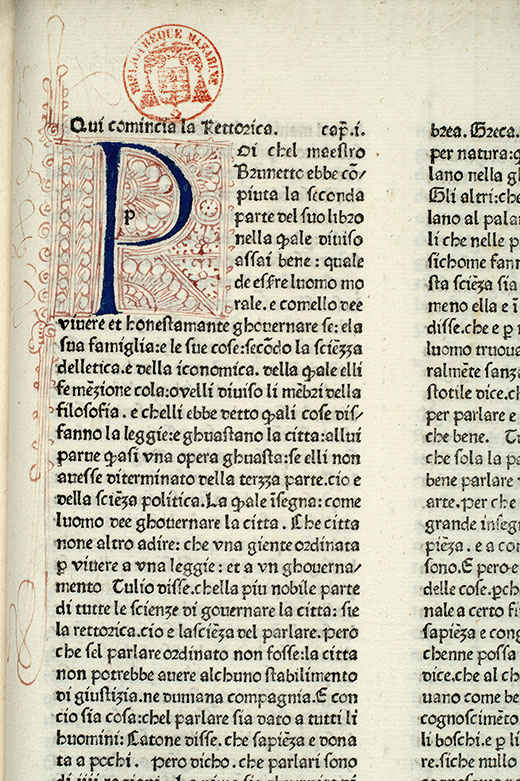 BIBLIOTHEQUE MAZARINE
Qui comincia la Rettorica. cap̃.i.
P
p
Oi chel maestro
Brunetto ebbe cõ/
piuta la seconda
parte del suo libro
nella q̃ale diuiso
assai bene : quale
de essere luomo mo
rale. e comello dee
viuere et honestamante ghouernare se: e la
sua famiglia: e le sue cose: secõdo la sciẽzza
delletica.e della iconomica. della q̃ale elli
fe mẽzione cola:ovelli diuiso li mẽbzi della
filosofia. e chelli ebbe detto q̃ali cose dis/
fanno la leggie:e ghuastano la citta:allui
parue q̃asi vna opera ghuasta:se elli non
auesse diterminato della terza parte.cio e
della sciẽza politica.La q̃ale ĩsegna: come
luomo dee ghouernare la citta. Che citta
none altro adire: che vna giente ordinata
p viuere a vna leggie: et a vn ghouerna/
mento Tulio disse.chella piu nobile parte
di tutte le scienze di gouernare la citta: sie
la rettorica.cio e lasciẽza del parlare.Pero
che sel parlare ordinato non fosse:la citta
non potrebbe auere alchuno stabilimento
di giustizia.ne dumana compagnia.E con
cio sia cosa:chel parlare sia dato a tutti li
huomini: Catone disse. che sapienza e dona
ta a pochi. Pero dicho. che parlari sono
di iiii ragioni.
brea. Greca.
per natura:q
lano nella gh
Gli altri:che
lano al palat
li che nelle p
sichome fann
sta sciẽza sia
meno ella e ĩ
disse.che e p
luomo truoua
ralmẽte sanza
stotile dice.ch
per parlare e
che bene. Tu
che sola la pa
bene parlare
arte.per che
grande insegn
piẽza. e a con
sono.E pero·e
delle cose.p̱ch
nale a certo fi
sapiẽza e cong
chenne possa
dice.che al ch
uano come be
cognoscimẽto
li boschi.e p li
re.siche nullo
cognoscesse